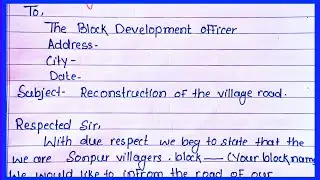 To,
The Block Development officer
Address-
City-
Date-
Subject- Reconstruction of the village road.
Respected Sir,
With due respect we beg to state that the
we are Sonpur villagers. block — (Your block name
We would like to infrom the road of our